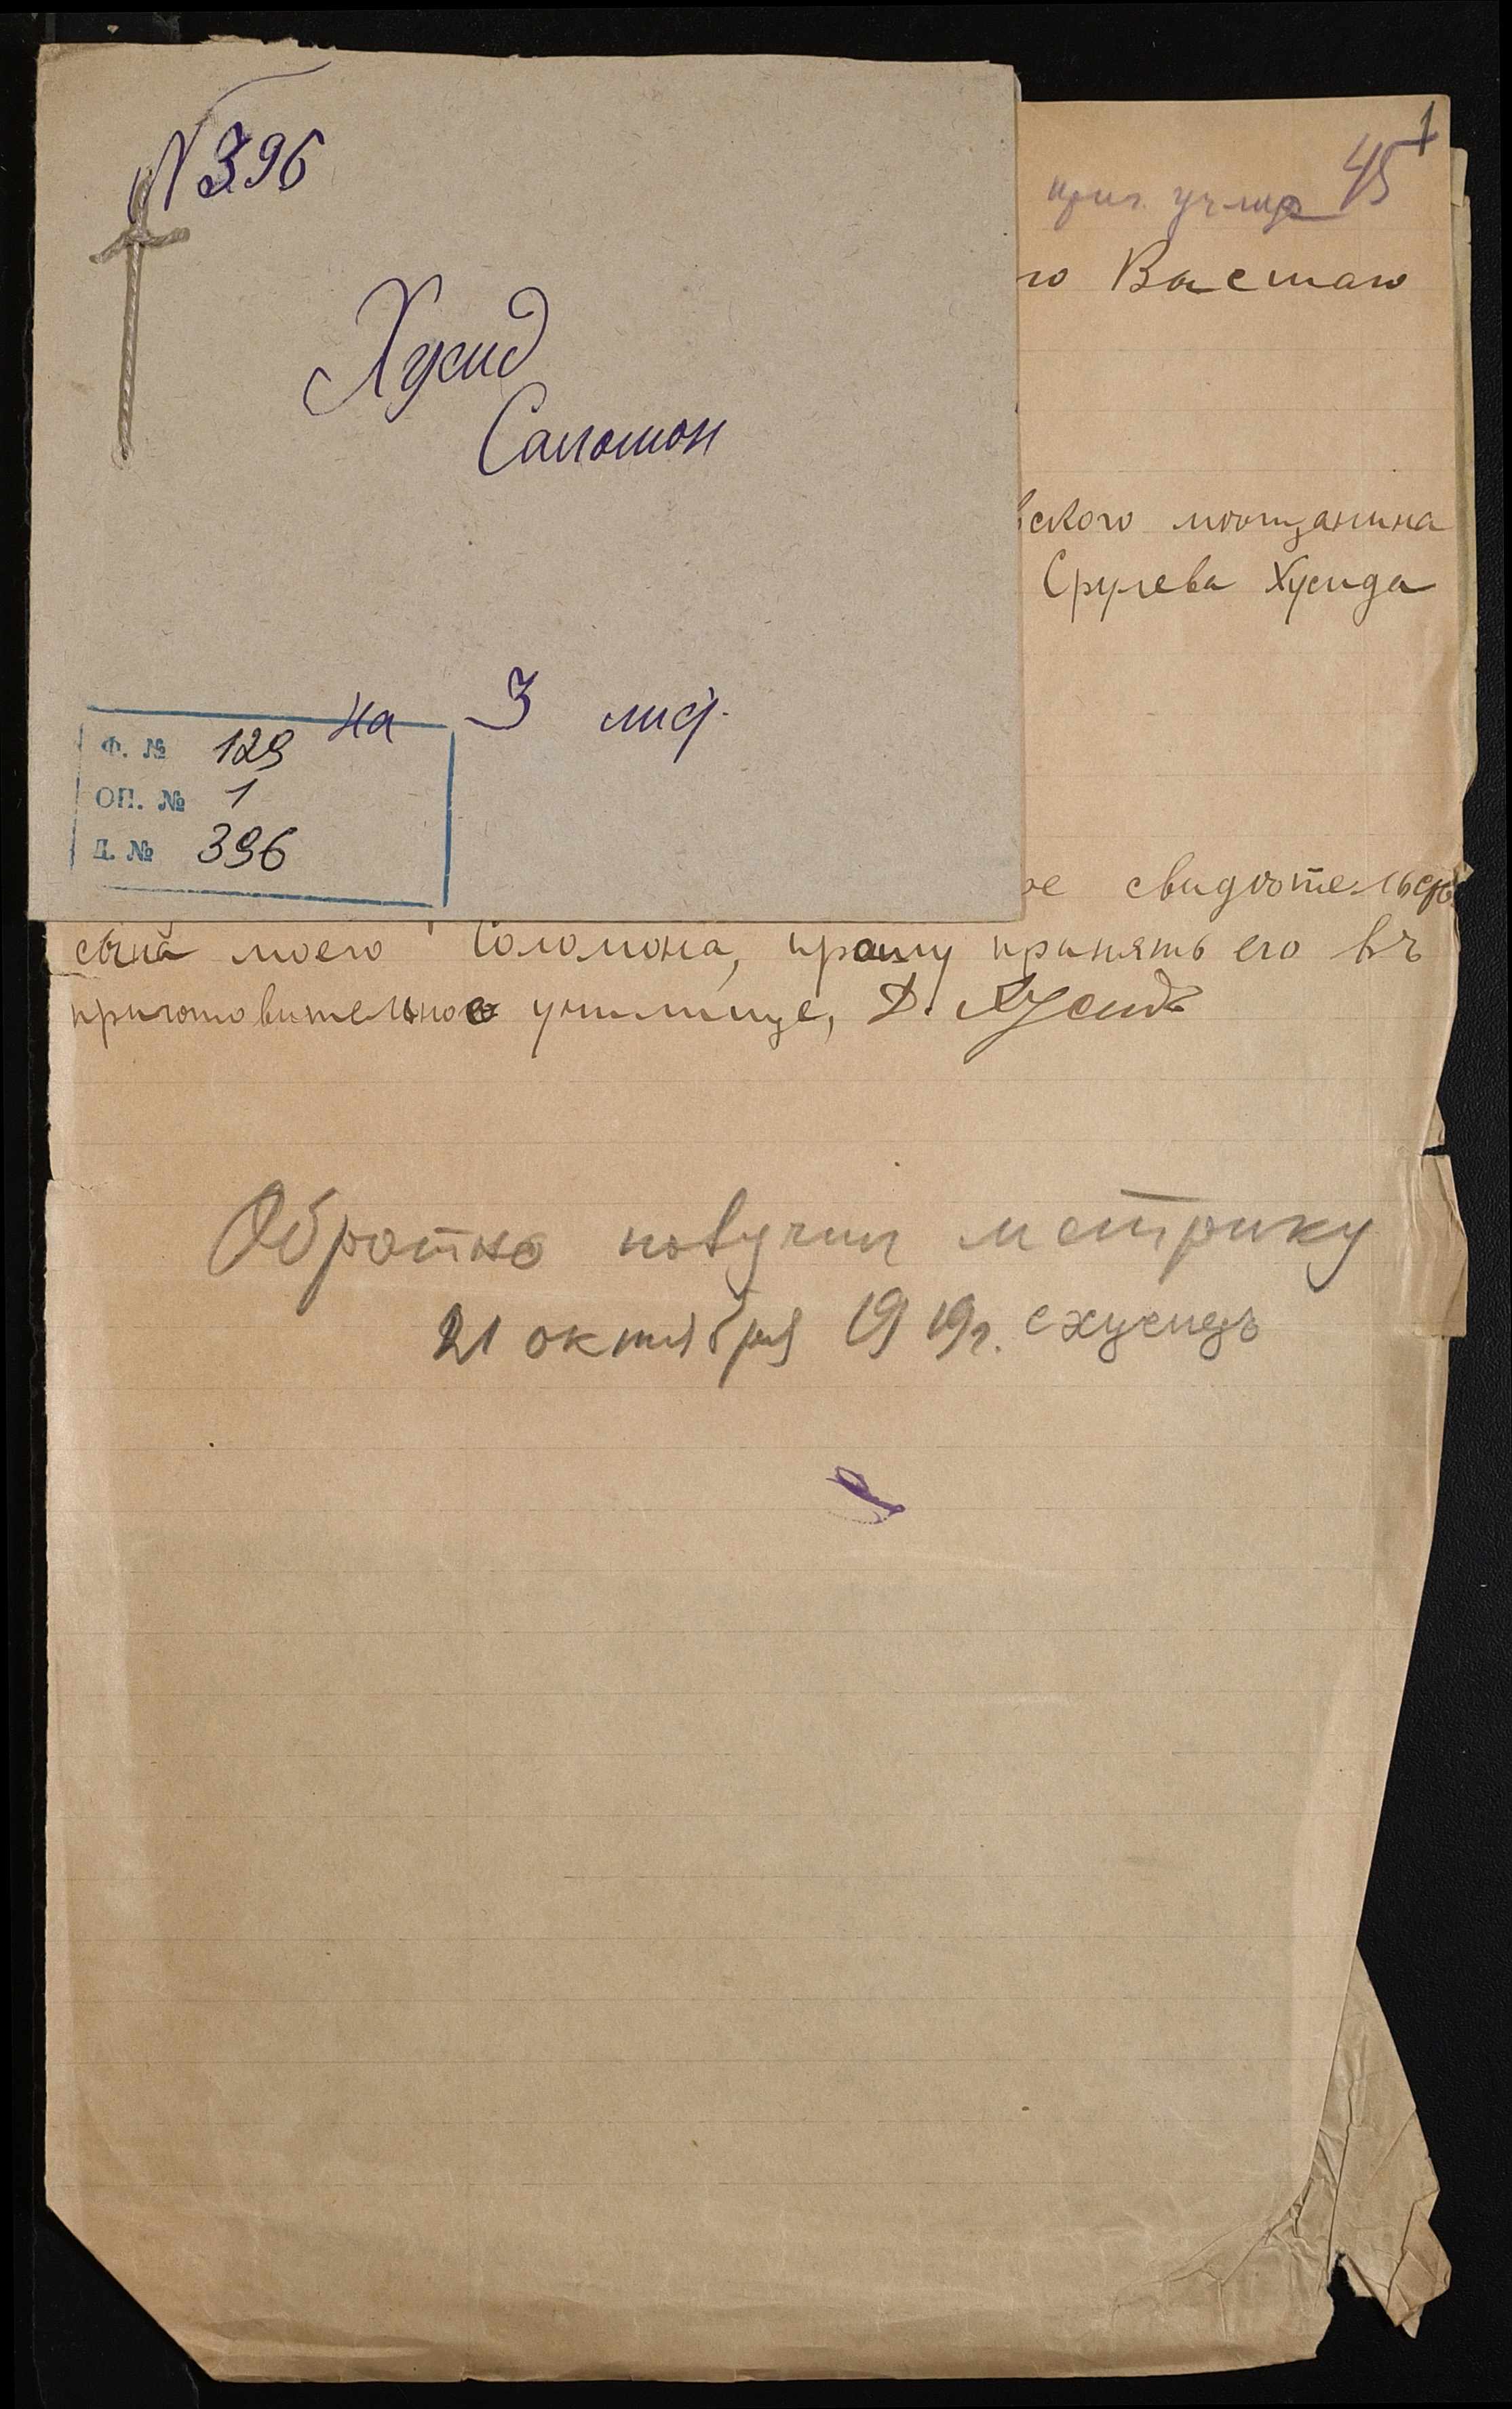 N 396
Хусид
Саломон
на 3 лис.
Ф. № 129
ОП. № 1
Д. № 396
1
45
приг. училищ
го Высшаго
вского мѣщанина
Срулева Хусида
ое свидѣтельст
сына моего Соломона, прошу принять его въ
приготовительное училище, Д. Хусидъ
Обратно получил метрику
21 октября 1919 г. СХусидъ